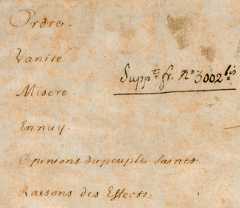 Ordre.
Vanité
Suppt fr. no 3002 bis
Misere
Ennuy.
Opinions du peuple Saines
Raisons des Effects.